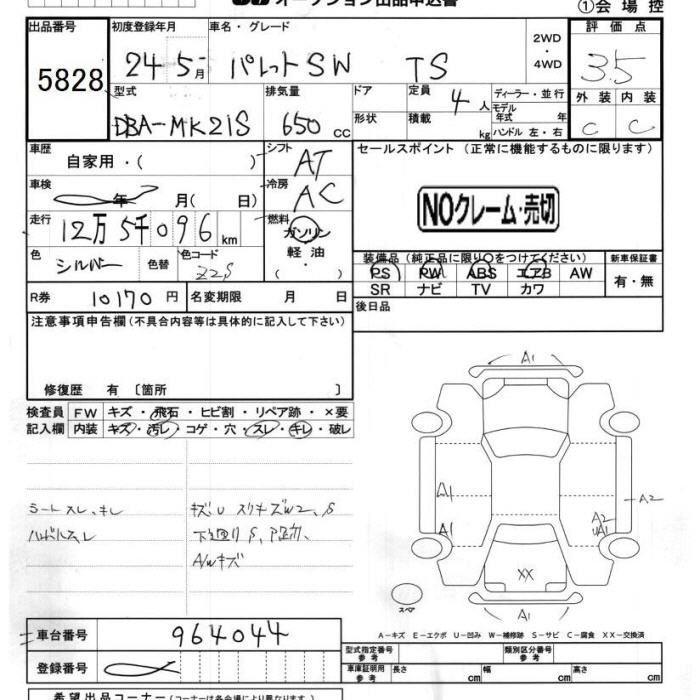 オークション出品申込書
①会場控
出品番号 初度登録年月 車名・グレード 評価点
5828 24年5月 パレットSW TS 2WD・4WD 3.5
型式 排気量 ドア 定員 4人 ディーラー・並行 外装 内装
DBA-MK21S 650cc 形状 積載 kg モデル年式 年 C C
ハンドル 左・右
車歴 自家用・( ) シフト AT セールスポイント(正常に機能するものに限ります)
車検 年 月( 日) 冷房 AC NOクレーム・売切
走行 12万5千096km 燃料 ガソリン
色 シルバー 色替 色コード Z2S 軽油・( ) 装備品(純正品に限り○をつけてください) 新車保証書
PS PW ABS エアB AW 有・無
R券 10170円 名変期限 月 日 SR ナビ TV カワ
注意事項申告欄(不具合内容等は具体的に記入して下さい) 後日品
修復歴 有〔箇所 〕
検査員 FW キズ・飛石・ヒビ割・リペア跡・×要
記入欄 内装 キズ・汚レ・コゲ・穴・スレ・キレ・破レ
A1
シートスレ、キレ キズU スリキズW2、S A1 A2
ハンドルスレ 下廻りS、 A1 A2 UA1
A/Wキズ
XX
スペア A1
A-キズ E-エクボ U-凹み W-補修跡 S-サビ C-腐食 XX-交換済
車台番号 964044
型式指定番号 参考 類別区分番号 参考
登録番号 車庫証明用 参考 長さ cm 幅 cm 高さ cm
希望出品コーナー(コーナーは各会場により異なります)